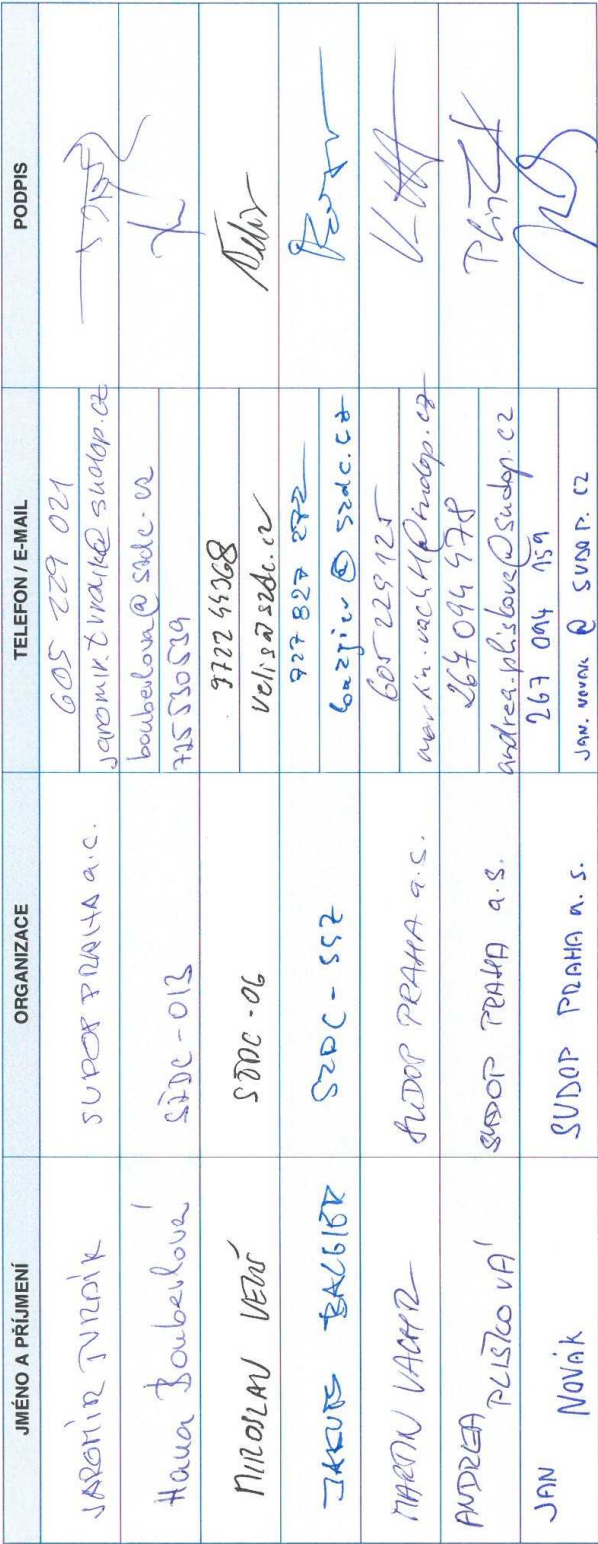 JMÉNO A PŘÍJMENÍ ORGANIZACE TELEFON / E-MAIL PODPIS
JAROMÍR TVRDÍK SUDOP PRAHA a.s. 605 229 021
jaromir.tvrdik@sudop.cz
Hana Bouberlová SŽDC-013 bouberlova@szdc.cz
725530539
MIROSLAV VELIŠ SŽDC-06 9722 44068
velis@szdc.cz
JAKUB BAZGIER SŽDC-SSZ 727 827 272
bazgier@szdc.cz
MARTIN VACHTL SUDOP PRAHA a.s. 605 229 125
martin.vachtl@sudop.cz
ANDREA PLIŠKOVÁ SUDOP PRAHA a.s. 267 094 478
andrea.pliskova@sudop.cz
JAN NOVÁK SUDOP PRAHA a.s. 267 094 159
JAN.NOVAK@SUDOP.CZ